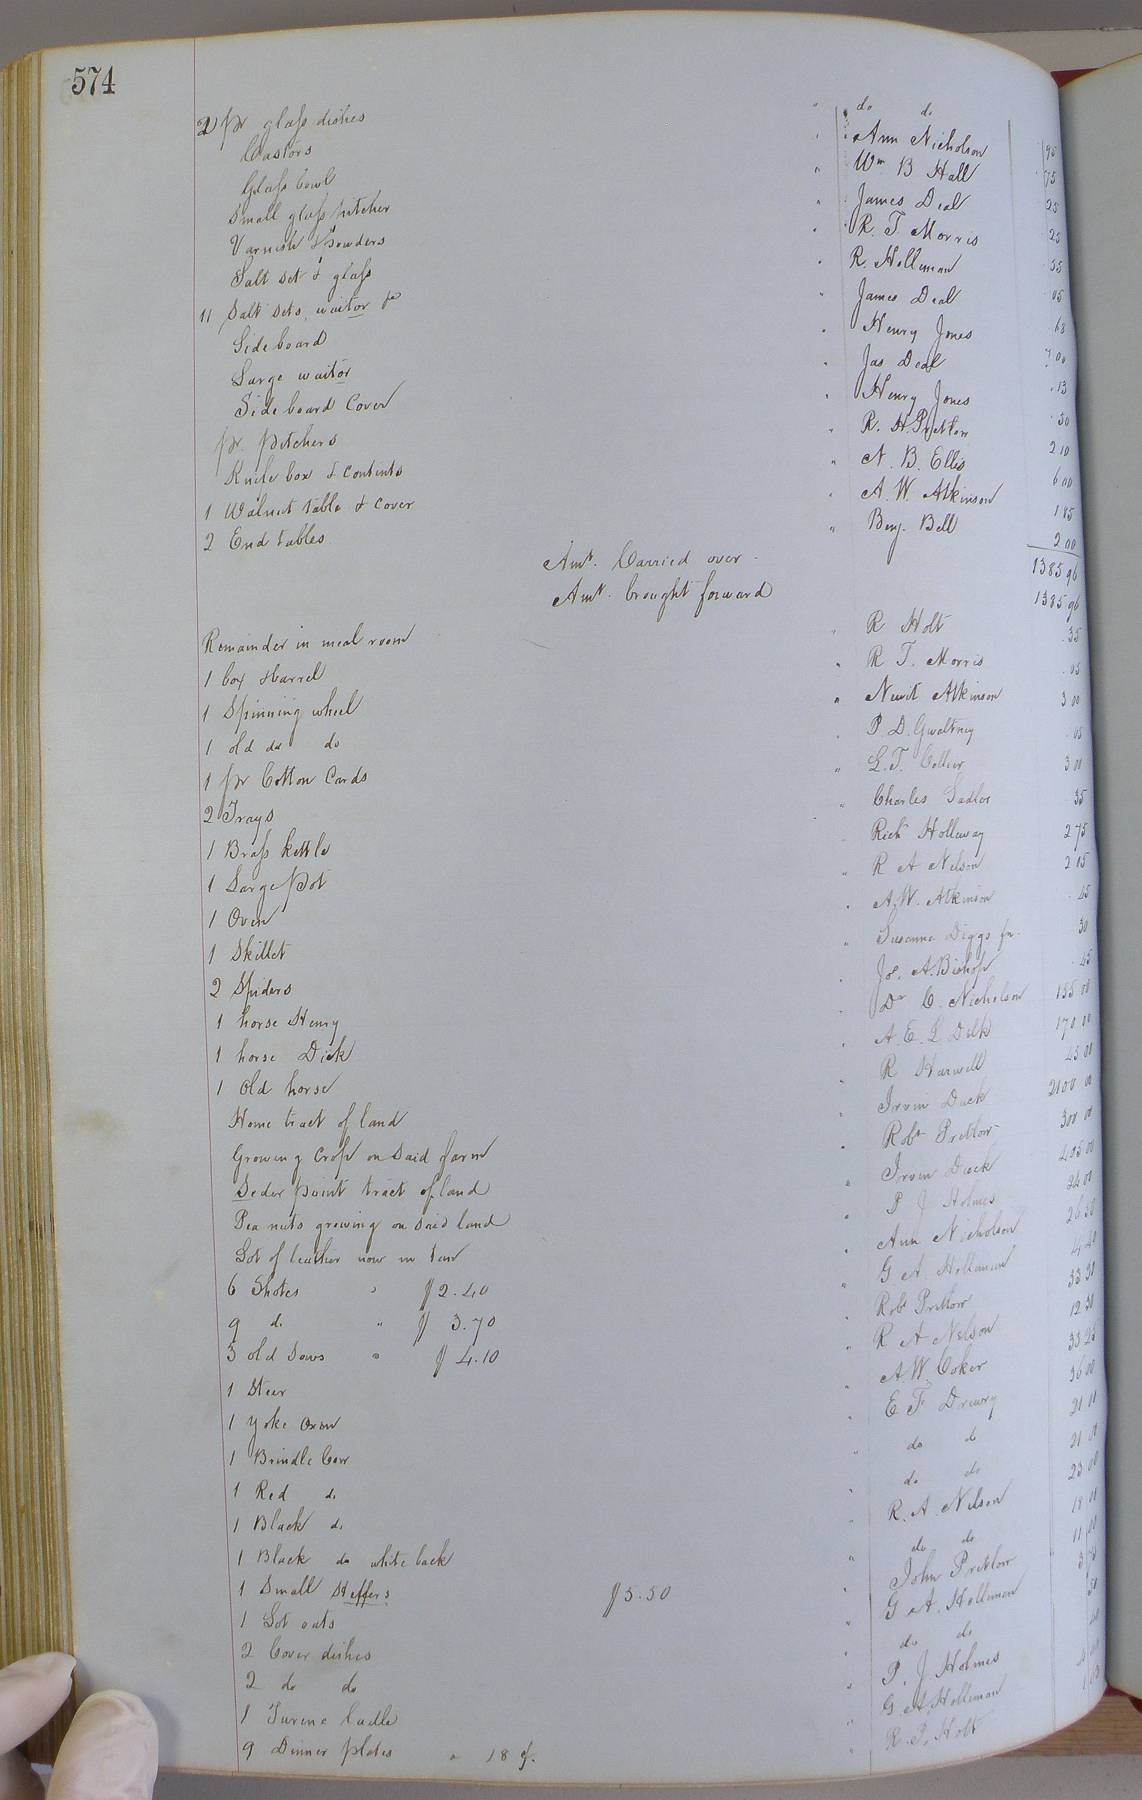 574
2 pr glass dishes " do do
Castors " Ann Nicholson 95
Glass bowl " Wm B Hall 75
Small glass pitcher " James Deal 25
Varnish & Powders " R. T. Morris 25
Salt set & glass " R. Holleman 55
11 Salt sets, waitor &c " James Deal 05
Side board " Henry Jones
Large waitor " Jas Deal 7 00
Side board Cover " Henry Jones 13
pr. pitchers " R. H. Pretlow 50
Knife box & contents " N. B. Ellis 2 10
1 Walnut table & cover " A. W. Atkinson 6 00
2 End tables " Benj. Bell 1 85
2 00
Amt. Carried over 1385 96
Amt. brought forward 1385 96
Remainder in meal room " R Holt 35
1 box & barrel " R T. Morris 05
1 Spinning wheel " Newit Atkinson 3 00
1 old do do " P. D. Gwaltney 05
1 pr Cotton Cards " L. T. Collier 3 00
2 Trays " Charles Sadler 35
1 Brass kettle Richd Holloway 2 75
1 Large Pot " R A Nelson 2 15
1 Oven " A. W. Atkinson 45
1 Skillet " Susanna Diggs 30
2 Spiders " Jos. A. Bishop 45
1 horse Henry " Dr C. Nicholson 155 00
1 horse Dick " A. E. L. Delk 170 00
1 Old horse " R Harwell 45 00
Home tract of land " Irvin Duck 2100 00
Growing Crop on Said farm " Robt Pretlow 300 00
Seder point tract of land " Irvin Duck 405 00
Pea nuts growing on said land " P J Holmes 24 00
Lot of leather now in tan " Ann Nicholson 26 50
6 Shotes " $2.40 " G A. Holleman 14 40
9 do " $3.70 " Robt Pretlow 33 30
3 old Sows " $4.10 " R A Nelson 12 30
1 Steer " A. W. Coker 33 25
1 Yoke Oxen " E T Drewry 36 00
1 Brindle Cow " do do 21 00
1 Red do " do do 21 00
1 Black do " R. A. Nelson 23 00
1 Black do white back " do do 18 00
1 Small Heffers $5.50 " John Pretlow 11 00
1 Lot oats " G A. Holleman
2 Cover dishes " do do 50
2 do do " P. J. Holmes
1 Turene Ladle " G. A. Holleman
9 Dinner plates " 18 ¢. " R. P. Holt